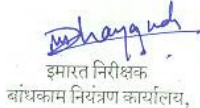 इमारत निरीक्षक
बांधकाम नियंत्रण कार्यालय,